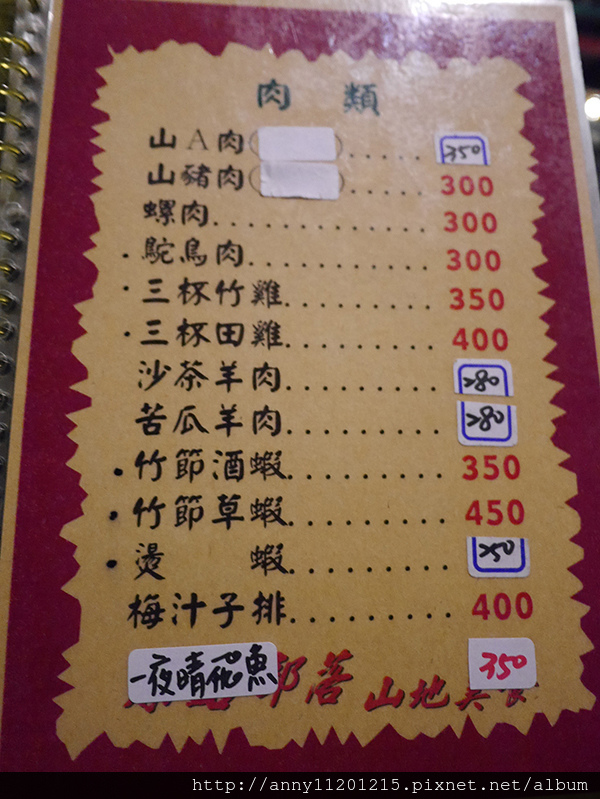 肉 類
山A肉( )..... 350
山豬肉( )..... 300
螺肉............. 300
·鴕鳥肉........... 300
·三杯竹雞......... 350
·三杯田雞......... 400
沙茶羊肉......... 280
苦瓜羊肉......... 280
·竹節酒蝦......... 350
·竹節草蝦......... 450
·燙 蝦......... 250
梅汁子排......... 400
一夜晴飛魚 350
部落 山地美食
http://anny11201215.pixnet.net/album